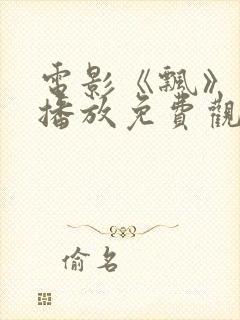 電影《飄》
播放免費觀
偷名